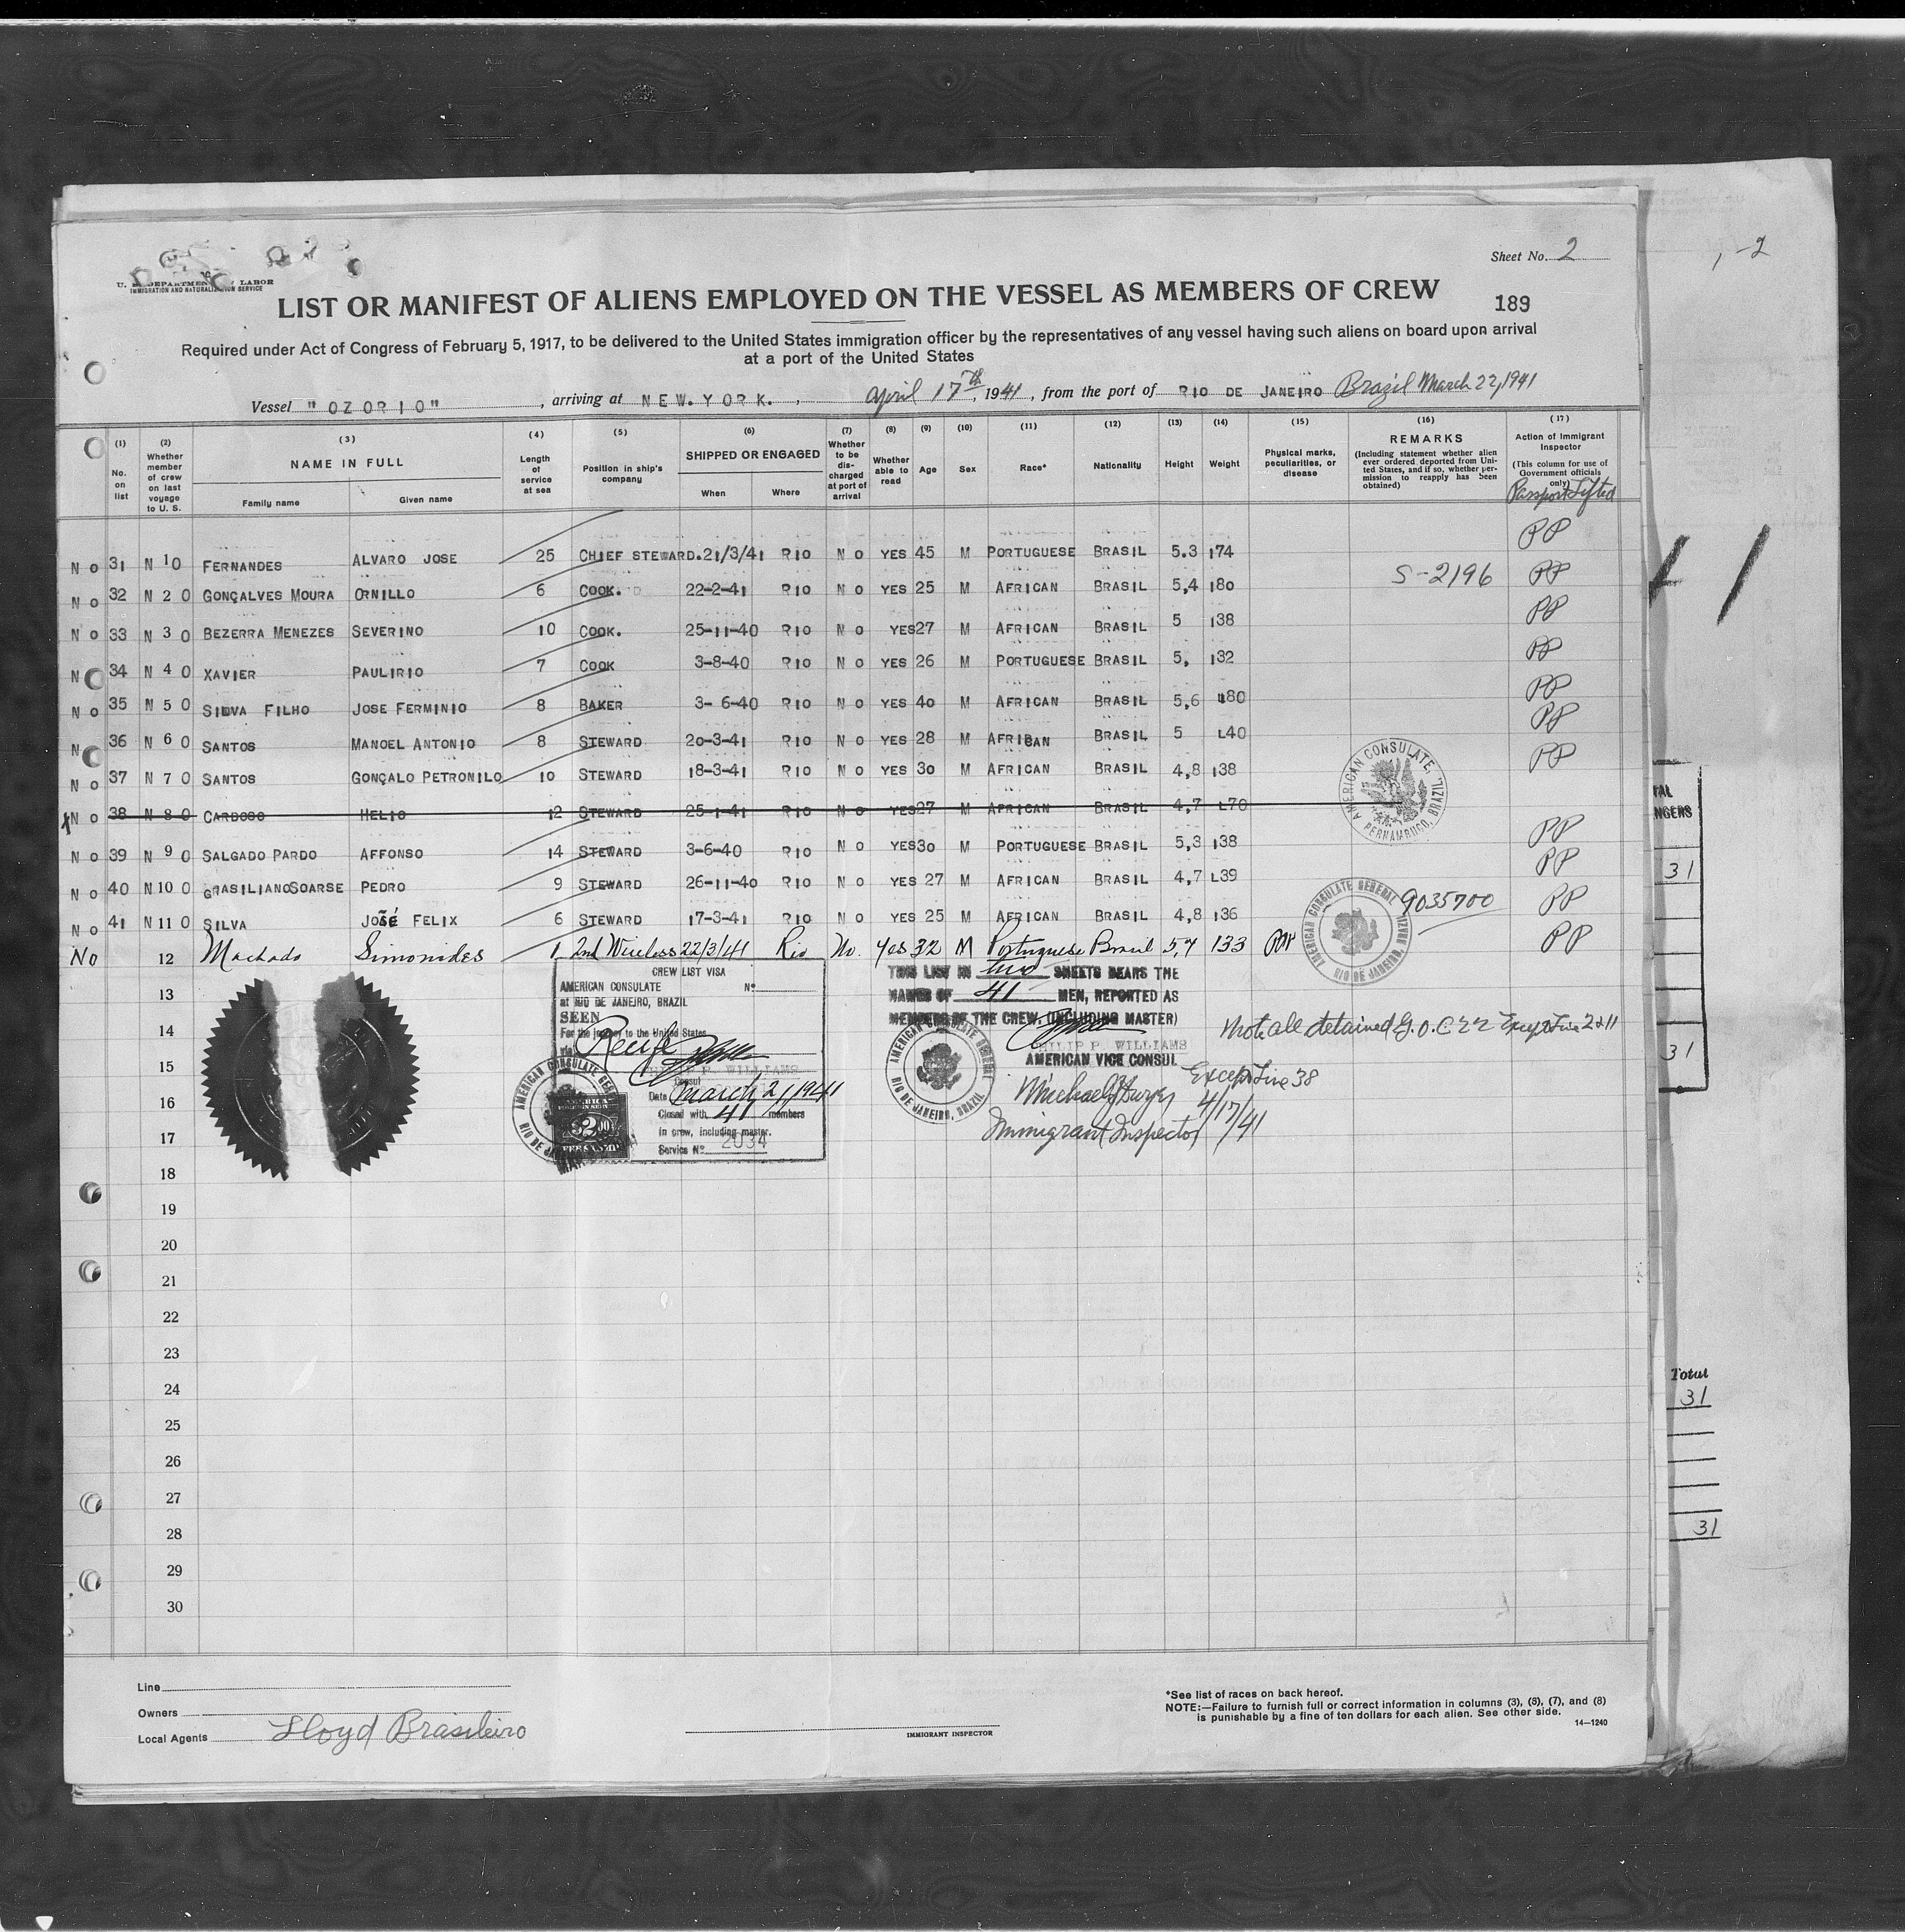 Sheet No. 2
1-2
U. S. DEPARTMENT OF LABOR
IMMIGRATION AND NATURALIZATION SERVICE
LIST OR MANIFEST OF ALIENS EMPLOYED ON THE VESSEL AS MEMBERS OF CREW
189
Required under Act of Congress of February 5, 1917, to be delivered to the United States immigration officer by the representatives of any vessel having such aliens on board upon arrival
at a port of the United States
Vessel "OZORIO", arriving at NEW.YORK., April 17th, 1941, from the port of RIO DE JANEIRO Brazil March 22, 1941
(1) No. on list
(2) Whether member of crew on last voyage to U. S.
(3) NAME IN FULL
Family name
Given name
(4) Length of service at sea
(5) Position in ship's company
(6) SHIPPED OR ENGAGED
When
Where
(7) Whether to be discharged at port of arrival
(8) Whether able to read
(9) Age
(10) Sex
(11) Race*
(12) Nationality
(13) Height
(14) Weight
(15) Physical marks, peculiarities, or disease
(16) REMARKS
(Including statement whether alien ever ordered deported from United States, and if so, whether permission to reapply has been obtained)
(17) Action of Immigrant Inspector
(This column for use of Government officials only)
Passport Lifted
No 31 N 1 0 FERNANDES ALVARO JOSE 25 CHIEF STEWARD. 21/3/41 RIO NO YES 45 M PORTUGUESE BRASIL 5.3 174 PP
No 32 N 2 0 GONÇALVES MOURA ORNILLO 6 COOK. 22-2-41 RIO NO YES 25 M AFRICAN BRASIL 5,4 180 S-2196 PP
No 33 N 3 0 BEZERRA MENEZES SEVERINO 10 COOK. 25-11-40 RIO NO YES 27 M AFRICAN BRASIL 5 138 PP
No 34 N 4 0 XAVIER PAULIRIO 7 COOK 3-8-40 RIO NO YES 26 M PORTUGUESE BRASIL 5, 132 PP
No 35 N 5 0 SILVA FILHO JOSE FERMINIO 8 BAKER 3-6-40 RIO NO YES 40 M AFRICAN BRASIL 5,6 180 PP
No 36 N 6 0 SANTOS MANOEL ANTONIO 8 STEWARD 20-3-41 RIO NO YES 28 M AFRICAN BRASIL 5 140 PP
No 37 N 7 0 SANTOS GONÇALO PETRONILO 10 STEWARD 18-3-41 RIO NO YES 30 M AFRICAN BRASIL 4,8 138 PP
x No 38 N 8 0 CARDOSO HELIO 12 STEWARD 25-1-41 RIO NO YES 27 M AFRICAN BRASIL 4,7 170
No 39 N 9 0 SALGADO PARDO AFFONSO 14 STEWARD 3-6-40 RIO NO YES 30 M PORTUGUESE BRASIL 5,3 138 PP
No 40 N 10 0 GRASILIANO SOARSE PEDRO 9 STEWARD 26-11-40 RIO NO YES 27 M AFRICAN BRASIL 4,7 139 PP
No 41 N 11 0 SILVA JOSÉ FELIX 6 STEWARD 17-3-41 RIO NO YES 25 M AFRICAN BRASIL 4,8 136 9035700 PP
No 12 Machado Simonides 1 2nd Wireless 22/3/41 Rio No. Yes 32 M Portuguese Brasil 5,7 133 PP
AMERICAN CONSULATE, PERNAMBUCO, BRAZIL
AMERICAN CONSULATE GENERAL RIO DE JANEIRO, BRAZIL
13
14
15
16
17
18
19
20
21
22
23
24
25
26
27
28
29
30
CREW LIST VISA
AMERICAN CONSULATE No
at RIO DE JANEIRO, BRAZIL
SEEN
For the journey to the United States
via Recife
PHILIP P. WILLIAMS
Consul
Date March 21, 1941
Closed with 41 members
in crew, including master.
Service No 2034
AMERICAN CONSULATE GENERAL RIO DE JANEIRO
$2.00
THIS LIST IN two SHEETS BEARS THE
NAMES OF 41 MEN, REPORTED AS
MEMBERS OF THE CREW. (INCLUDING MASTER)
PHILIP P. WILLIAMS
AMERICAN VICE CONSUL
AMERICAN CONSULATE GENERAL RIO DE JANEIRO, BRAZIL
Not all detained G.O.C 22 Except Line 2 & 11
Except Line 38
Michael J Dwyer 4/17/41
Immigrant Inspector
TAL
NGERS
31
31
Total
31
31
Line
Owners
Local Agents Lloyd Brasileiro
IMMIGRANT INSPECTOR
*See list of races on back hereof.
NOTE:—Failure to furnish full or correct information in columns (3), (5), (7), and (8)
is punishable by a fine of ten dollars for each alien. See other side.
14—1240